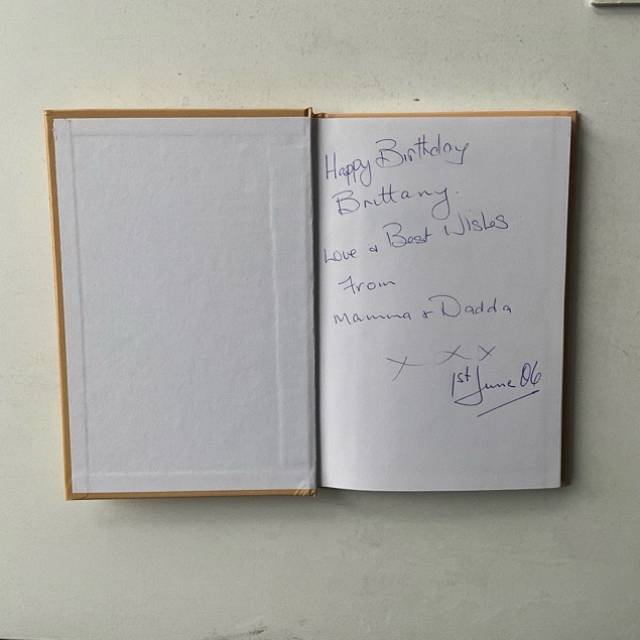 Happy Birthday
Brittany.
Love & Best Wishes
From
Mamma & Dadda
X X X
1st June 06